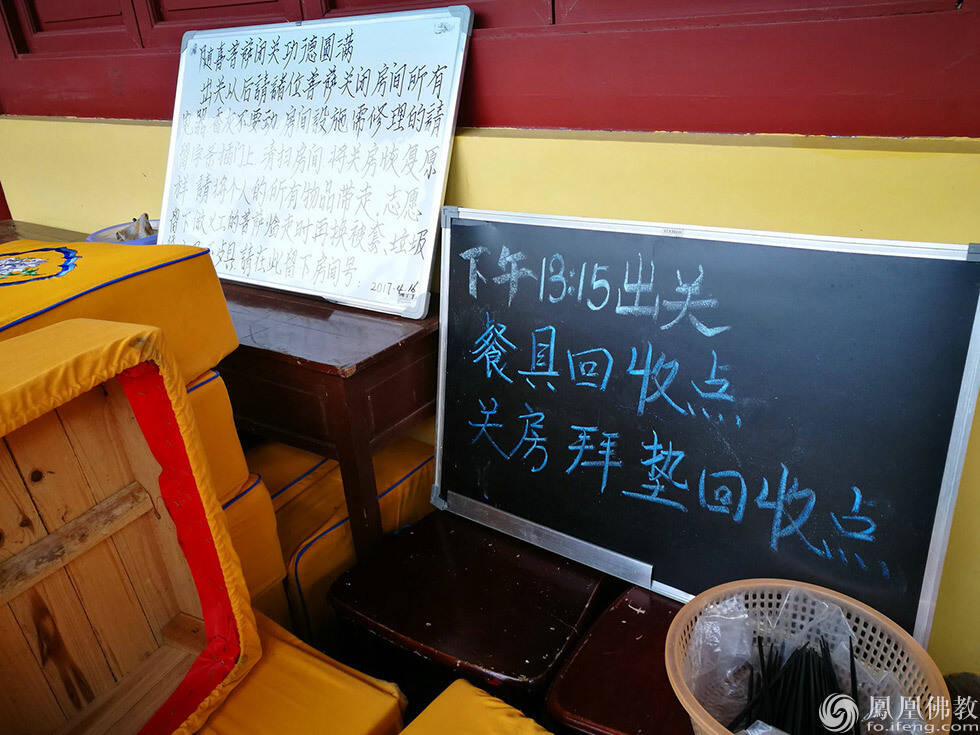 随喜菩萨闭关功德圆满
出关以后請諸位菩萨关闭房间所有
首次不要动 房间設施需修理的請
插门上 清扫房间 将关房恢复原
样 請将个人的所有物品带走 志愿
留下做义工的菩萨临走时再换被套 垃圾
具 請在此留下房间号
2017.4.16
下午13:15出关
餐具回收点
关房 拜垫回收点
鳳凰佛教
fo.ifeng.com